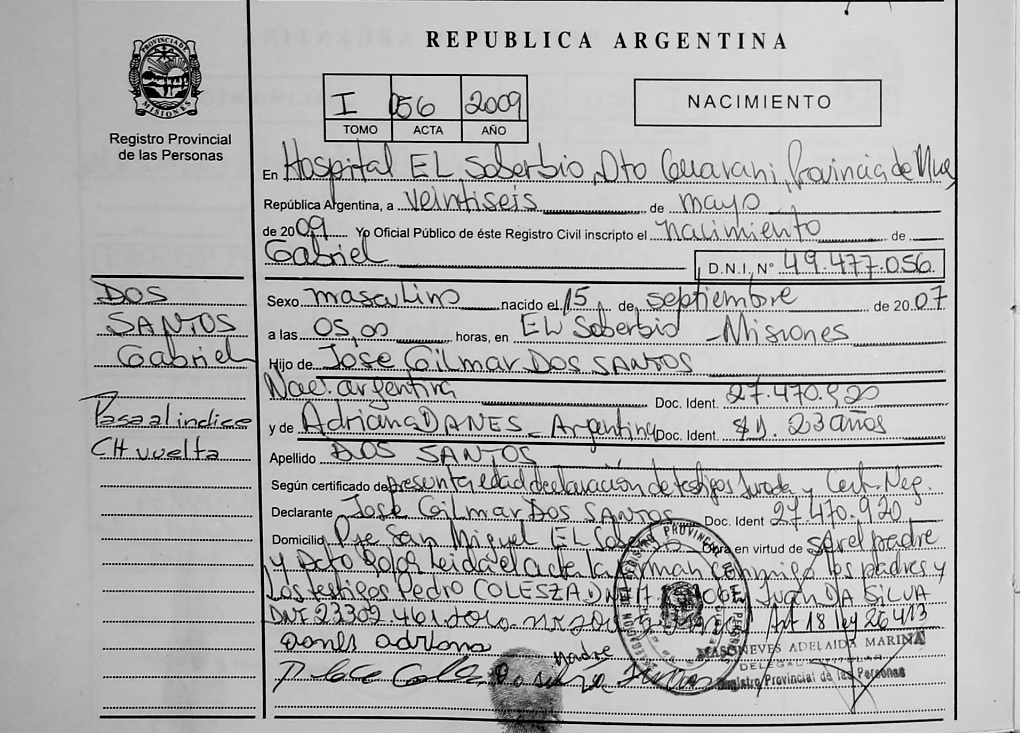 PROVINCIA DE
MISIONES
Registro Provincial
de las Personas
REPUBLICA ARGENTINA
I 056 2009
TOMO ACTA AÑO
NACIMIENTO
En Hospital EL Soberbio, Dto Guarani, Provincia de Mnes
República Argentina, a veintiseis de mayo
de 2009 Yo Oficial Público de éste Registro Civil inscripto el nacimiento de
Gabriel D.N.I. N° 49.477.056.
Sexo masculino nacido el 15 de septiembre de 2007
a las 05,00 horas, en EL Soberbio - Misiones
Hijo de Jose Gilmar DOS SANTOS
Nac. argentina Doc. Ident. 27.470.920
y de Adriana DANES - Argentina Doc. Ident. 23 años
Apellido DOS SANTOS
Según certificado de presunta edad declaración de testigos Jurada y Cert. Neg.
Declarante José Gilmar DOS SANTOS Doc. Ident 27.470.920
Domicilio Pje San Miguel EL Obra en virtud de ser el padre
y Dcto 90/09 Leida el acta la firman conmigo los padres y
Los testigos Pedro COLESZA DNI Juan DA SILVA
DNI 23309.461 Art 18 ley 26413
danes adriana madre
MASONEVES ADELAIDA MARINA
DELEGADA TITULAR
Registro Provincial de las Personas
DOS
SANTOS
Gabriel
Pasa al indice
CH vuelta